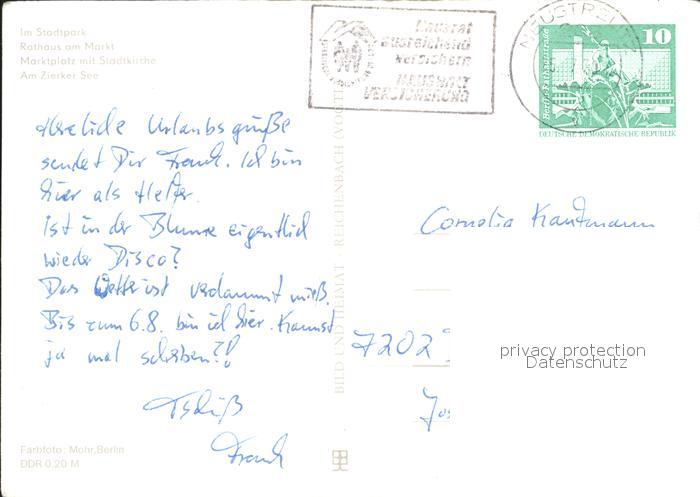 Im Stadtpark
Rathaus am Markt
Marktplatz mit Stadtkirche
Am Zierker See
Hausrat
ausreichend
versichern
HAUSHALT
VERSICHERUNG
NEUSTRELITZ
Berlin, Rathausstraße
10
DEUTSCHE DEMOKRATISCHE REPUBLIK
Herzliche Urlaubsgrüße
sendet Dir Frank. Ich bin
hier als Helfer.
Ist in der Blume eigentlich
wieder Disco?
Das Wetter ist verdammt mieß.
Bis zum 6.8. bin ich hier. Kannst
ja mal schreiben?!
Tschüß
Frank
Cornelia Kaufmann
7202
privacy protection
Datenschutz
BILD UND HEIMAT · REICHENBACH (VOGTL
Farbfoto: Mohr, Berlin
DDR 0,20 M